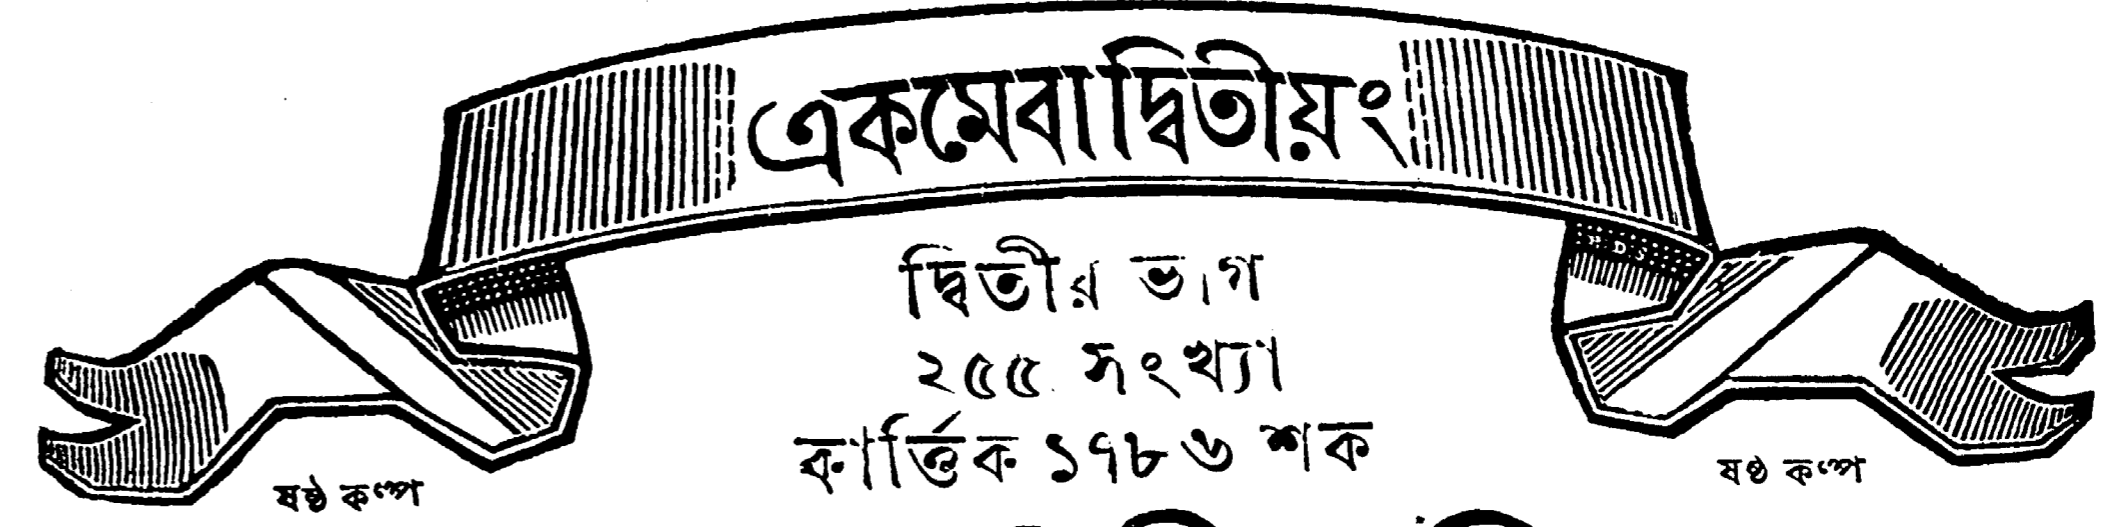 একমেবাদ্বিতীয়ং
দ্বিতীর ভাগ
২৫৫ সংখ্যা
কার্ত্তিক ১৭৮৬ শক
ষষ্ঠ কল্প
ষষ্ঠ কল্প